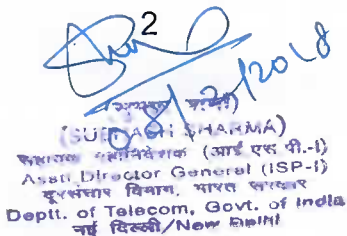 2
08/2/2018
(SUBHASH SHARMA)
सहायक महानिदेशक (आई एस पी.-I)
Asstt Director General (ISP-I)
दूरसंचार विभाग, भारत सरकार
Deptt. of Telecom, Govt. of India
नई दिल्ली/New Delhi